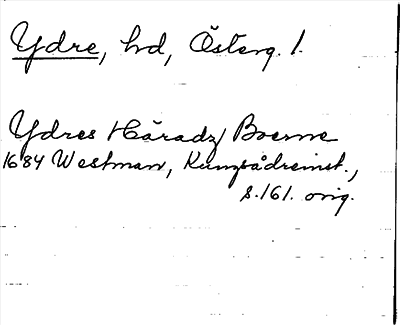 Ydre, hd, Österg. l.
Ydres Häradz Boerne
1684 Westman, Kungsådreinst.,
s. 161. orig.